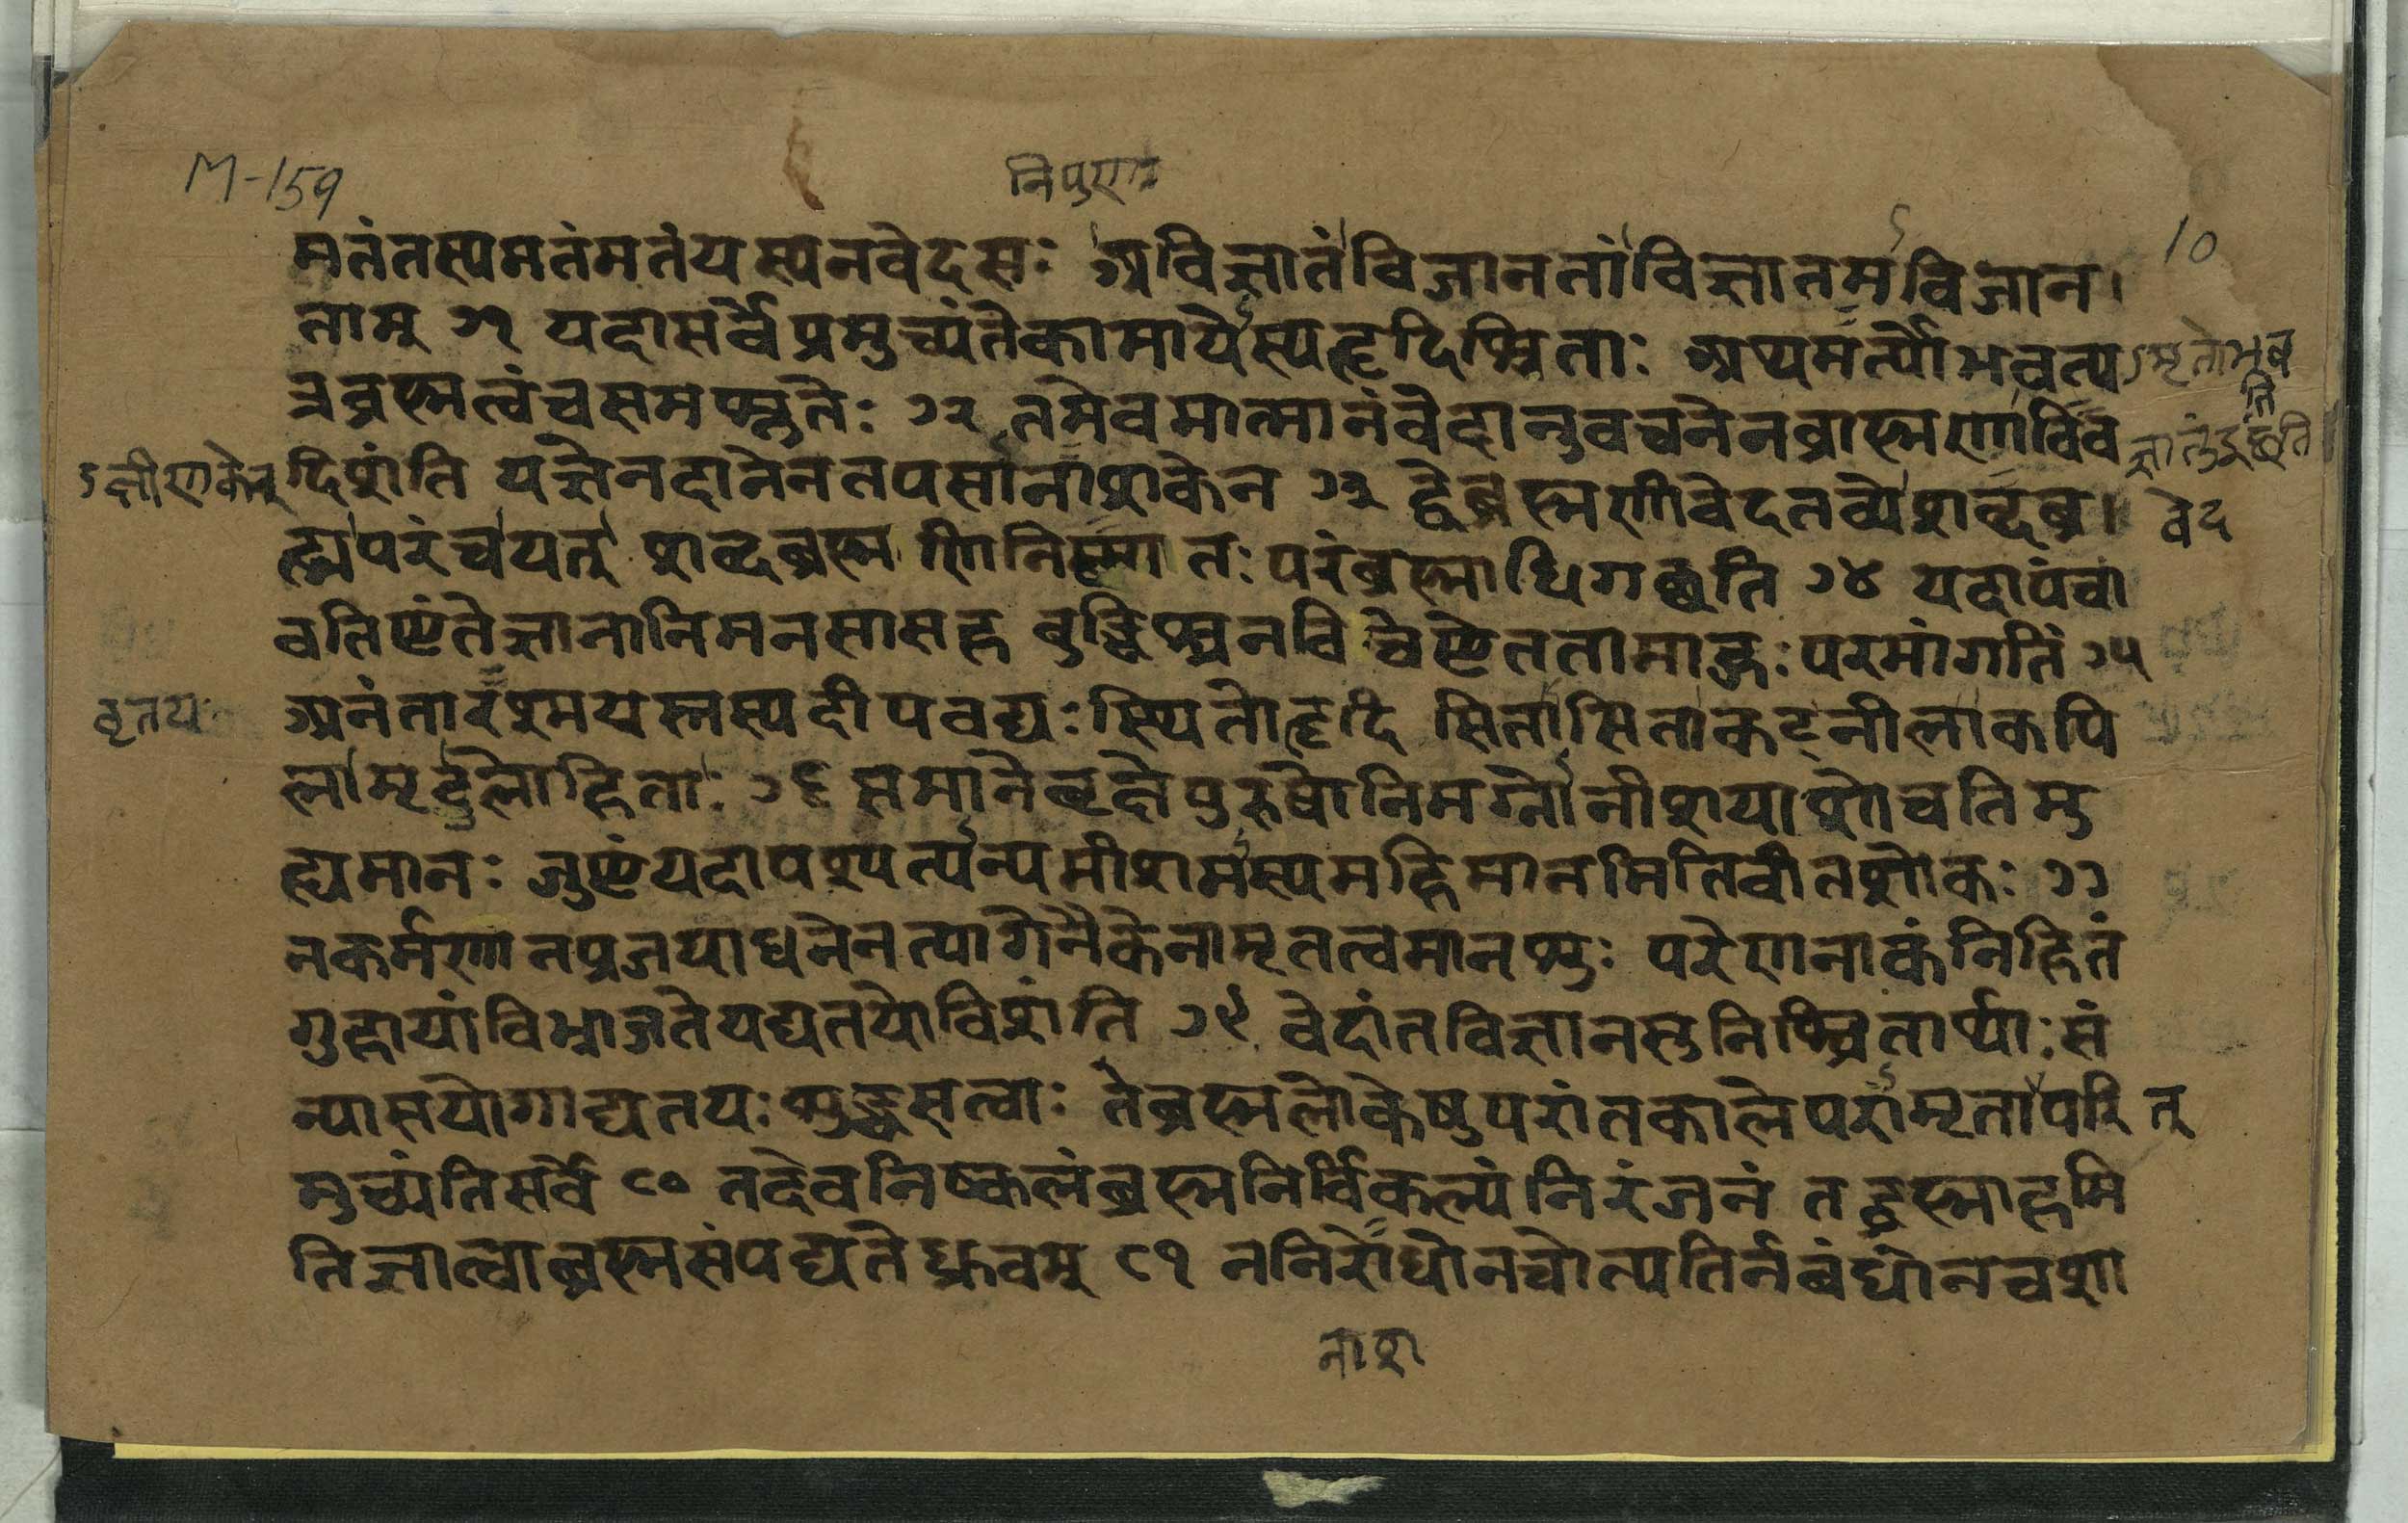 M-159
निपुण
10
मतंतस्यमतंमतंयस्यनवेदसः अविज्ञातंविजानतांविज्ञातमविजान।
ताम् ७१ यदासर्वेप्रमुच्यंतेकामायेस्यहृदिश्रिताः अथमर्त्योभवत्य
ऽमृतोभव
ति
त्रब्रह्मत्वंचसमश्नुतेः ७२ तमेवमात्मानंवेदानुवचनेनब्राह्मणाविव
ज्ञातुंइछति
दिशंति यज्ञेनदानेनतपसानाशकेन ७३ द्वेब्रह्मणीवेदतव्येशब्दब्र।
वेद
ह्मपरंचयत् शब्दब्रह्मणिनिष्णातः परंब्रह्माधिगच्छति ७४ यदापंचा
वतिष्टंतेज्ञानानिमनसासह बुद्धिश्चनविचेष्टेततामाहुः परमांगतिं ७५
वृतय
अनंतारश्मयस्तस्यदीपवद्यः स्थितोहृदि सितासिताकद्रुनीलाकपि
लामृदुलोहिताः ७६ समानेवृक्षेपुरुषोनिमग्नोनीशयाशोचतिमु
ह्यमानः जुष्टंयदापश्यत्यन्यमीशमस्यमहिमानमितिवीतशोकः ७७
नकर्मणानप्रजयाधनेनत्यागेनैकेनामृतत्वमानशुः परेणनाकंनिहितं
गुहायांविभ्राजतेयद्यतयोविशंति ७९ वेदांतविज्ञानसुनिश्चितार्थाः सं
न्यासयोगाद्यतयः शुद्धसत्वाः तेब्रह्मलोकेषुपरांतकालेपरामृतापरि
त्
मुच्यंतिसर्वे ८० तदेवनिष्कलंब्रह्मनिर्विकल्पंनिरंजनं तद्ब्रह्माहमि
तिज्ञात्वाब्रह्मसंपद्यतेध्रुवम् ८१ ननिरोधोनचोत्पतिर्नबंधोनचशा
नाश